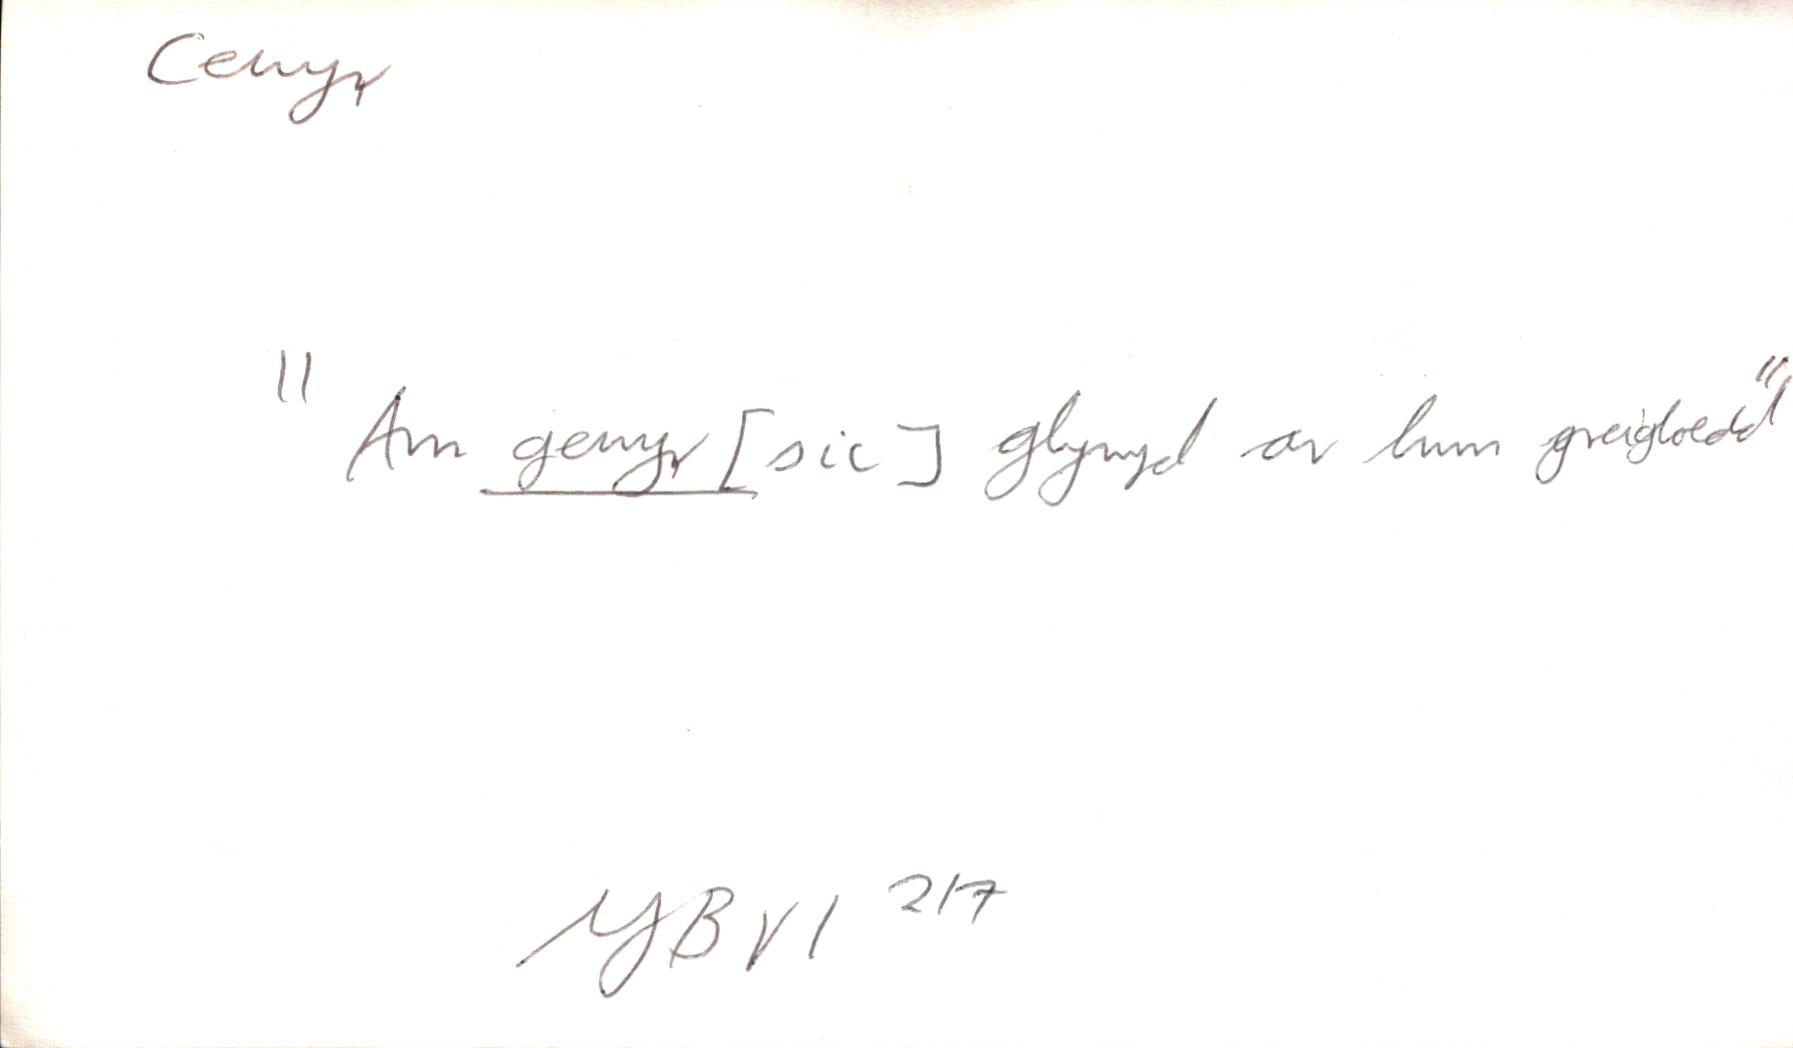 Cenyr
" Am genyr [sic] glynyd ar lwm greigleoedd"
YB VI 217